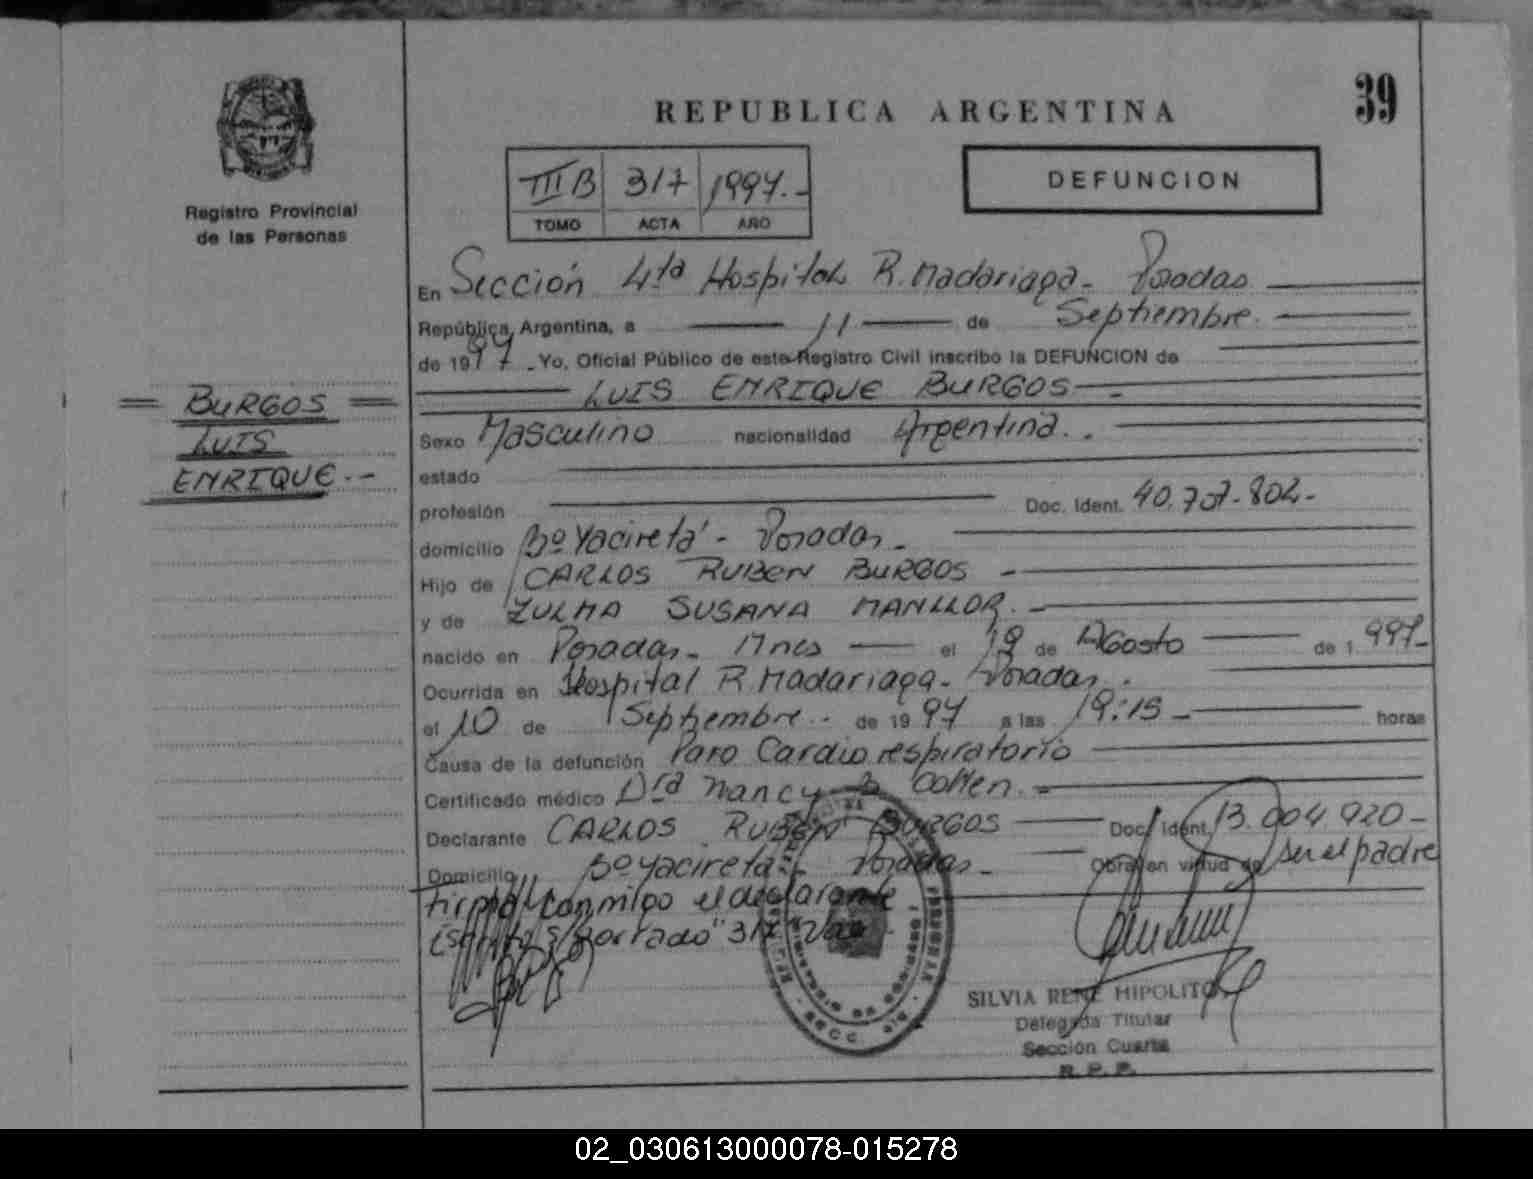 39
REPUBLICA ARGENTINA
Registro Provincial
de las Personas
III B 317 1997.-
TOMO ACTA AÑO
DEFUNCION
En Sección 4ta Hospital R. Madariaga - Posadas
República Argentina, a 11 de Septiembre.
de 1997. Yo, Oficial Público de este Registro Civil inscribo la DEFUNCION de
LUIS ENRIQUE BURGOS
= BURGOS =
LUIS
ENRIQUE.-
Sexo Masculino nacionalidad Argentina.
estado
profesión Doc. Ident. 40.707.802-
domicilio Bº Yacireta - Posadas -
Hijo de CARLOS RUBEN BURGOS -
y de ZULMA SUSANA MANLLOR. -
nacido en Posadas - Mnes el 19 de Agosto de 1.997-
Ocurrida en Hospital R. Madariaga - Posadas.
el 10 de Septiembre.. de 1997 a las 19:15 - horas
Causa de la defunción Paro Cardio respiratorio
Certificado médico Dra Nancy
Declarante CARLOS RUBEN BURGOS Doc. Ident. 13.004.920-
Domicilio Bº Yacireta - Posadas - Obra en virtud de ser el padre
Firma conmigo el declarante
"317" Vale
SILVIA RENE HIPOLITO
Delegada Titular
Sección Cuarta
R. P. P.
02_030613000078-015278